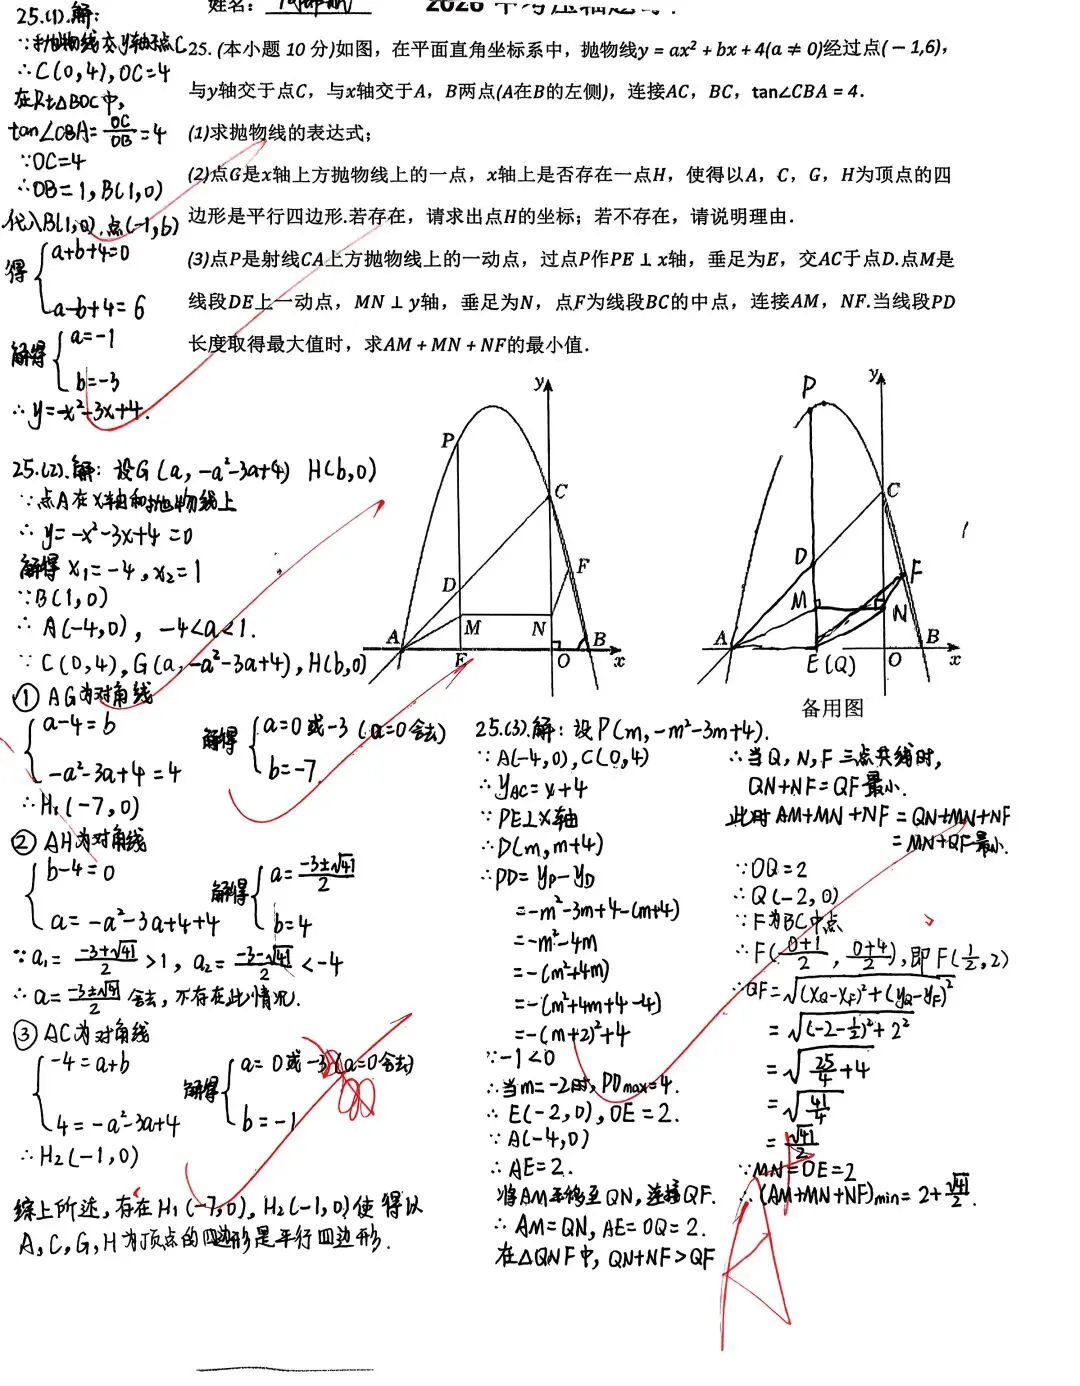 姓名：
2026 中考压轴题
25. (本小题 10 分)如图，在平面直角坐标系中，抛物线y = ax² + bx + 4(a ≠ 0)经过点(－1,6)，
与y轴交于点C，与x轴交于A，B两点(A在B的左侧)，连接AC，BC，tan∠CBA = 4．
(1)求抛物线的表达式；
(2)点G是x轴上方抛物线上的一点，x轴上是否存在一点H，使得以A，C，G，H为顶点的四
边形是平行四边形.若存在，请求出点H的坐标；若不存在，请说明理由．
(3)点P是射线CA上方抛物线上的一动点，过点P作PE ⊥ x轴，垂足为E，交AC于点D.点M是
线段DE上一动点，MN ⊥ y轴，垂足为N，点F为线段BC的中点，连接AM，NF.当线段PD
长度取得最大值时，求AM + MN + NF的最小值．
25.(1).解:
∵抛物线交y轴于点C
∴C(0,4),OC=4
在Rt△BOC中,
tan∠CBA=OC/OB=4
∵OC=4
∴OB=1,B(1,0)
代入B(1,0),点(-1,6)
得{a+b+4=0
a-b+4=6
解得{a=-1
b=-3
∴y=-x²-3x+4.
y
P
C
D
F
M
N
A
E
O
B
x
y
P
C
D
F
M
N
A
E(Q)
O
B
x
备用图
25.(2).解: 设G(a,-a²-3a+4) H(b,0)
∵点A在x轴和抛物线上
∴y=-x²-3x+4=0
解得x₁=-4,x₂=1
∵B(1,0)
∴A(-4,0), -4<a<1.
∵C(0,4),G(a,-a²-3a+4),H(b,0)
① AG为对角线
{a-4=b
-a²-3a+4=4
解得{a=0或-3 (a=0舍去)
b=-7
∴H₁(-7,0)
② AH为对角线
{b-4=0
a=-a²-3a+4+4
解得{a=(-3±√41)/2
b=4
∵a₁=(-3+√41)/2>1, a₂=(-3-√41)/2<-4
∴a=(-3±√41)/2舍去,不存在此情况.
③ AC为对角线
{-4=a+b
4=-a²-3a+4
解得{a=0或-3(a=0舍去)
b=-1
∴H₂(-1,0)
综上所述,存在H₁(-7,0),H₂(-1,0)使得以
A,C,G,H为顶点的四边形是平行四边形.
25.(3).解: 设P(m,-m²-3m+4).
∵A(-4,0),C(0,4)
∴yAC=x+4
∵PE⊥x轴
∴D(m,m+4)
∴PD=yP-yD
=-m²-3m+4-(m+4)
=-m²-4m
=-(m²+4m)
=-(m²+4m+4-4)
=-(m+2)²+4
∵-1<0
∴当m=-2时,PDmax=4.
∴E(-2,0),OE=2.
∵A(-4,0)
∴AE=2.
将AM平移至QN,连接QF.
∴AM=QN,AE=OQ=2.
在△QNF中,QN+NF>QF
∴当Q,N,F三点共线时,
QN+NF=QF最小.
此时AM+MN+NF=QN+MN+NF
=MN+QF最小.
∵OQ=2
∴Q(-2,0)
∵F为BC中点
∴F((0+1)/2,(0+4)/2),即F(1/2,2)
∴QF=√((xQ-xF)²+(yQ-yF)²)
=√((-2-1/2)²+2²)
=√(25/4+4)
=√(41/4)
=√41/2
∵MN=OE=2
∴(AM+MN+NF)min=2+√41/2.